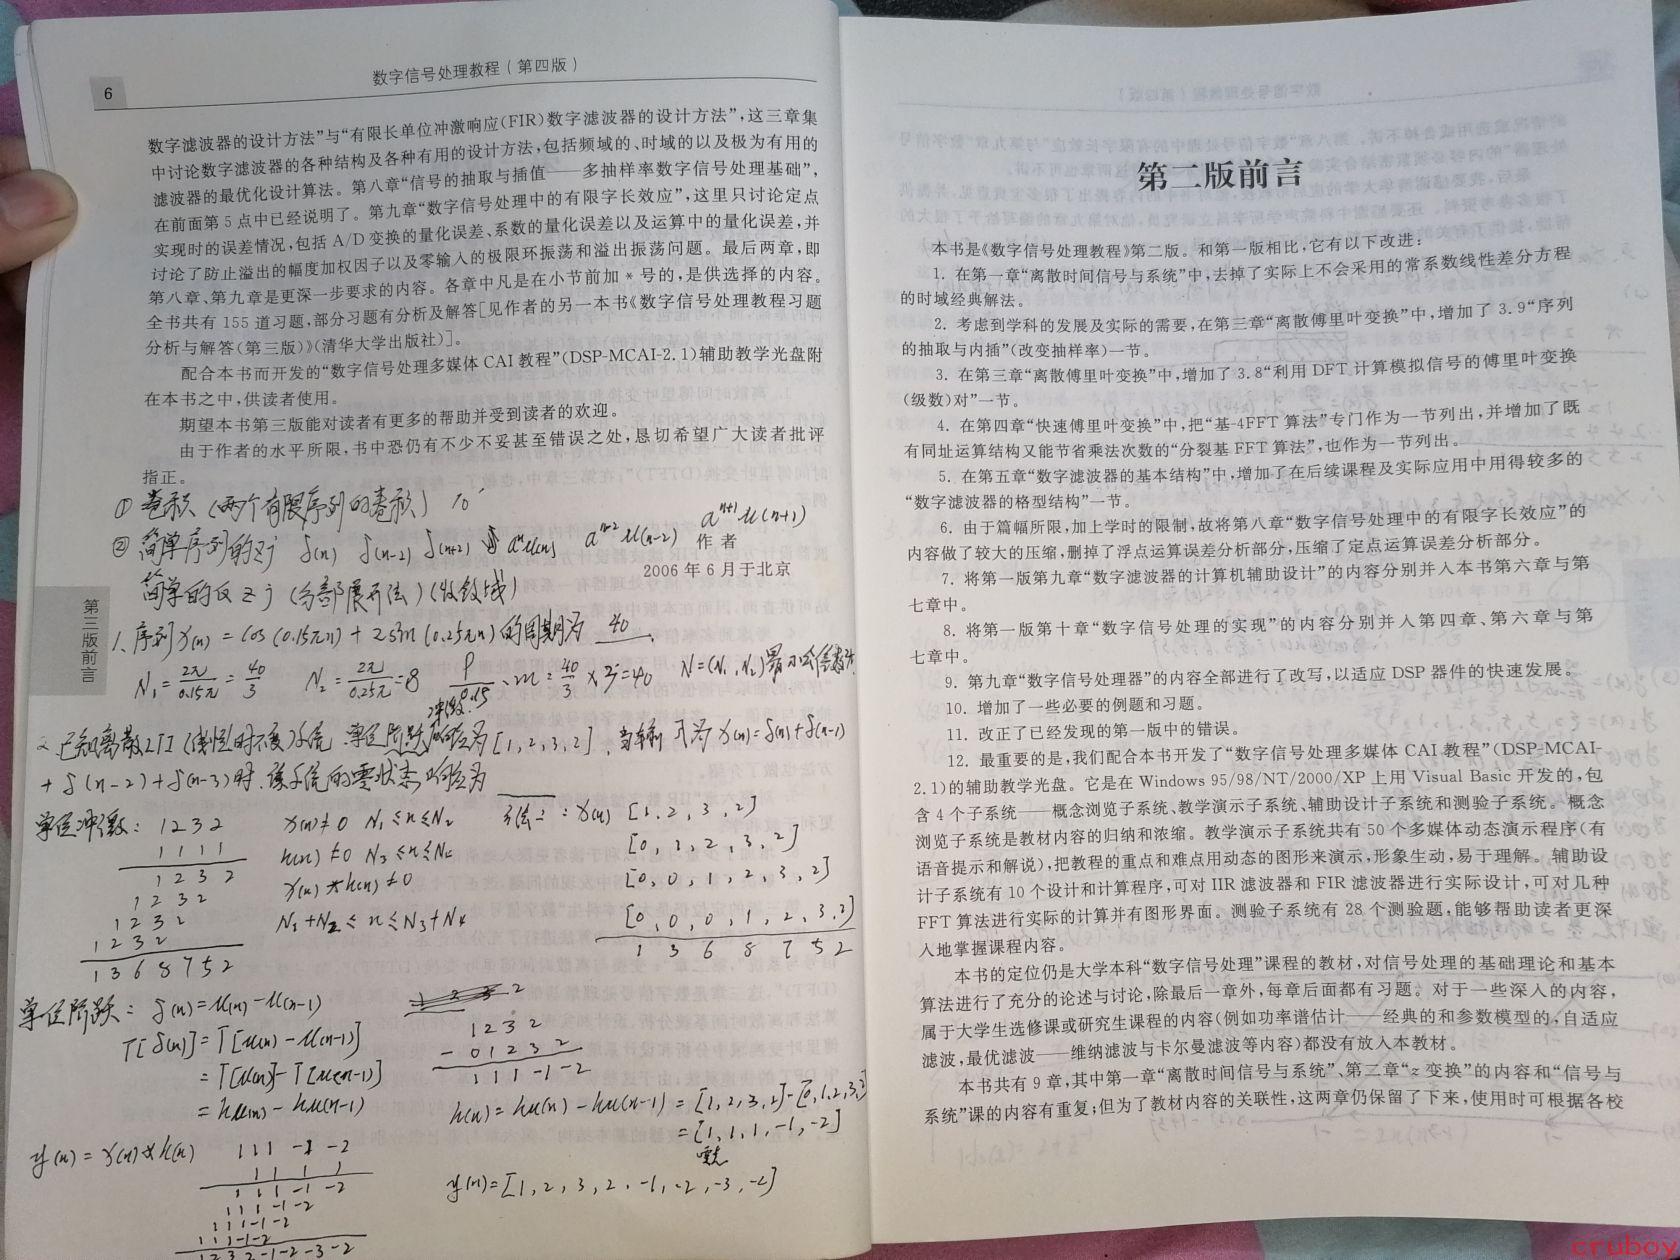 6
数字信号处理教程(第四版)
数字滤波器的设计方法”与“有限长单位冲激响应(FIR)数字滤波器的设计方法”,这三章集
中讨论数字滤波器的各种结构及各种有用的设计方法,包括频域的、时域的以及极为有用的
滤波器的最优化设计算法。第八章“信号的抽取与插值——多抽样率数字信号处理基础”,
在前面第5点中已经说明了。第九章“数字信号处理中的有限字长效应”,这里只讨论定点
实现时的误差情况,包括A/D变换的量化误差、系数的量化误差以及运算中的量化误差,并
讨论了防止溢出的幅度加权因子以及零输入的极限环振荡和溢出振荡问题。最后两章,即
第八章、第九章是更深一步要求的内容。各章中凡是在小节前加*号的,是供选择的内容。
全书共有155道习题,部分习题有分析及解答[见作者的另一本书《数字信号处理教程习题
分析与解答(第三版)》(清华大学出版社)]。
配合本书而开发的“数字信号处理多媒体CAI教程”(DSP-MCAI-2.1)辅助教学光盘附
在本书之中,供读者使用。
期望本书第三版能对读者有更多的帮助并受到读者的欢迎。
由于作者的水平所限,书中恐仍有不少不妥甚至错误之处,恳切希望广大读者批评
指正。
① 卷积(两个有限序列的卷积) 10'
② 简单序列的Z变 δ(n) δ(n-2) δ(n+2) aⁿu(n) aⁿ⁻²u(n-2) aⁿ⁺¹u(n+1)
作者
2006年6月于北京
简单的反Z变 (分部展开法)(收敛域)
第三版前言
1、序列x(n)=cos(0.15πn)+2sin(0.25πn)的周期为 40 .
N₁=2π/0.15π=40/3 N₂=2π/0.25π=8 m=40/3×3=40 N=(N₁,N₂)最小公倍数为
冲激
2、已知离散LTI(线性时不变)系统,单位阶跃响应为[1,2,3,2],当输入为x(n)=δ(n)+δ(n-1)
+δ(n-2)+δ(n-3)时,该系统的零状态响应为
单位冲激: 1 2 3 2 x(n)≠0 N₁≤n≤N₂ 方法二: x(n) [1,2,3,2]
1 1 1 1 h(n)≠0 N₃≤n≤N₄ [0,1,2,3,2]
1 2 3 2 x(n)*h(n)≠0 [0,0,1,2,3,2]
1 2 3 2
1 2 3 2 N₁+N₂≤n≤N₃+N₄ [0,0,0,1,2,3,2]
1 2 3 2
1 3 6 8 7 5 2 1 3 6 8 7 5 2
单位阶跃: δ(n)=u(n)-u(n-1)
T[δ(n)]=T[u(n)-u(n-1)] 1 2 3 2
=T[u(n)]-T[u(n-1)] - 0 1 2 3 2
1 1 1 -1 -2
=hu(n)-hu(n-1) h(n)=hu(n)-hu(n-1)=[1,2,3,2]-[0,1,2,3,2]
=[1,1,1,-1,-2]
y(n)=x(n)*h(n) 1 1 1 -1 -2
1 1 1 1
1 1 1 -1 -2 y(n)=[1,2,3,2,-1,-2,-3,-2]
1 1 1 -1 -2
1 1 1 -1 -2
1 1 1 -1 -2
1 2 3 2 -1 -2 -3 -2
第二版前言
本书是《数字信号处理教程》第二版。和第一版相比,它有以下改进:
1. 在第一章“离散时间信号与系统”中,去掉了实际上不会采用的常系数线性差分方程
的时域经典解法。
2. 考虑到学科的发展及实际的需要,在第三章“离散傅里叶变换”中,增加了3.9“序列
的抽取与内插”(改变抽样率)一节。
3. 在第三章“离散傅里叶变换”中,增加了3.8“利用DFT计算模拟信号的傅里叶变换
(级数)对”一节。
4. 在第四章“快速傅里叶变换”中,把“基-4FFT算法”专门作为一节列出,并增加了既
有同址运算结构又能节省乘法次数的“分裂基FFT算法”,也作为一节列出。
5. 在第五章“数字滤波器的基本结构”中,增加了在后续课程及实际应用中用得较多的
“数字滤波器的格型结构”一节。
6. 由于篇幅所限,加上学时的限制,故将第八章“数字信号处理中的有限字长效应”的
内容做了较大的压缩,删掉了浮点运算误差分析部分,压缩了定点运算误差分析部分。
7. 将第一版第九章“数字滤波器的计算机辅助设计”的内容分别并入本书第六章与第
七章中。
8. 将第一版第十章“数字信号处理的实现”的内容分别并入第四章、第六章与第
七章中。
9. 第九章“数字信号处理器”的内容全部进行了改写,以适应DSP器件的快速发展。
10. 增加了一些必要的例题和习题。
11. 改正了已经发现的第一版中的错误。
12. 最重要的是,我们配合本书开发了“数字信号处理多媒体CAI教程”(DSP-MCAI-
2.1)的辅助教学光盘。它是在Windows 95/98/NT/2000/XP上用Visual Basic开发的,包
含4个子系统——概念浏览子系统、教学演示子系统、辅助设计子系统和测验子系统。概念
浏览子系统是教材内容的归纳和浓缩。教学演示子系统共有50个多媒体动态演示程序(有
语音提示和解说),把教程的重点和难点用动态的图形来演示,形象生动,易于理解。辅助设
计子系统有10个设计和计算程序,可对IIR滤波器和FIR滤波器进行实际设计,可对几种
FFT算法进行实际的计算并有图形界面。测验子系统有28个测验题,能够帮助读者更深
入地掌握课程内容。
本书的定位仍是大学本科“数字信号处理”课程的教材,对信号处理的基础理论和基本
算法进行了充分的论述与讨论,除最后一章外,每章后面都有习题。对于一些深入的内容,
属于大学生选修课或研究生课程的内容(例如功率谱估计——经典的和参数模型的,自适应
滤波,最优滤波——维纳滤波与卡尔曼滤波等内容)都没有放入本教材。
本书共有9章,其中第一章“离散时间信号与系统”、第二章“z变换”的内容和“信号与
系统”课的内容有重复;但为了教材内容的关联性,这两章仍保留了下来,使用时可根据各校
cruboy